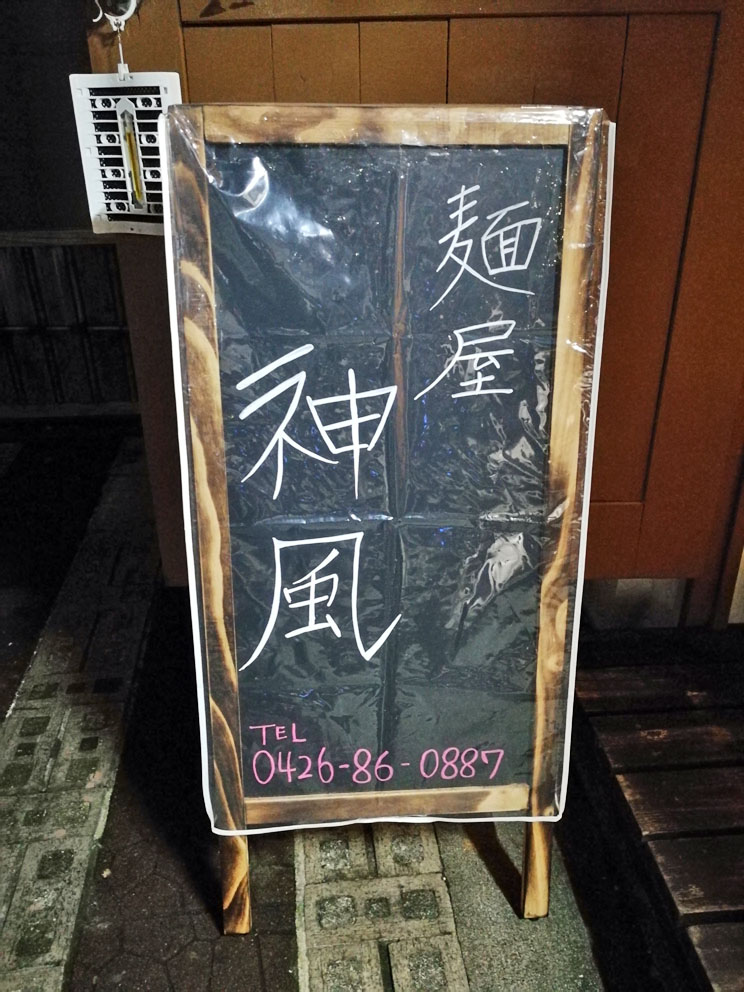 麺屋
神風
TEL
0426-86-0887